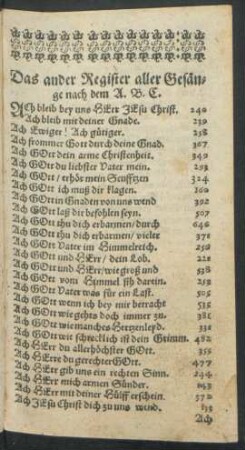 Das ander Register aller Gesän-
ge nach dem A. B. C.
ACh bleib bey uns HErr JEsu Christ. 240
Ach bleib mit deiner Gnade. 239
Ach Ewiger! Ach gütiger. 258
Ach frommer Gott durch deine Gnad. 307
Ach GOtt dein arme Christenheit. 349
Ach GOtt du liebster Vater mein. 253
Ach GOtt / erhör mein Seufftzen 324
Ach GOtt ich muß dir klagen. 160
Ach GOtt in Gnaden von uns wend 302
Ach GOtt laß dir befohlen seyn. 507
Ach GOtt thu dich erbarmen / durch 646
Ach GOtt thu dich erbarmen / vieler 371
Ach GOtt Vater im Himmelreich. 250
Ach GOtt und HErr / dein Lob. 221
Ach GOtt und HErr / wie groß und 538
Ach GOtt vom Himmel sih darein. 253
Ach GOtt Vater was für ein Last. 505
Ach GOtt wenn ich bey mir betracht 535
Ach GOtt wie gehts doch immer zu. 381
Ach GOtt wie manches Hertzenleyd. 331
Ach GOtt wie schrecklich ist dein Grimm. 482
Ach HErr du allerhöchster GOtt. 355
Ach HErre du gerechter GOtt. 477
Ach HErr gib uns ein rechten Sinn. 244
Ach HErr mich armen Sünder.
Ach HErr mit deiner Hülff erschein. 572
Ach JEsu Christ dich zu uns wend.
Ach